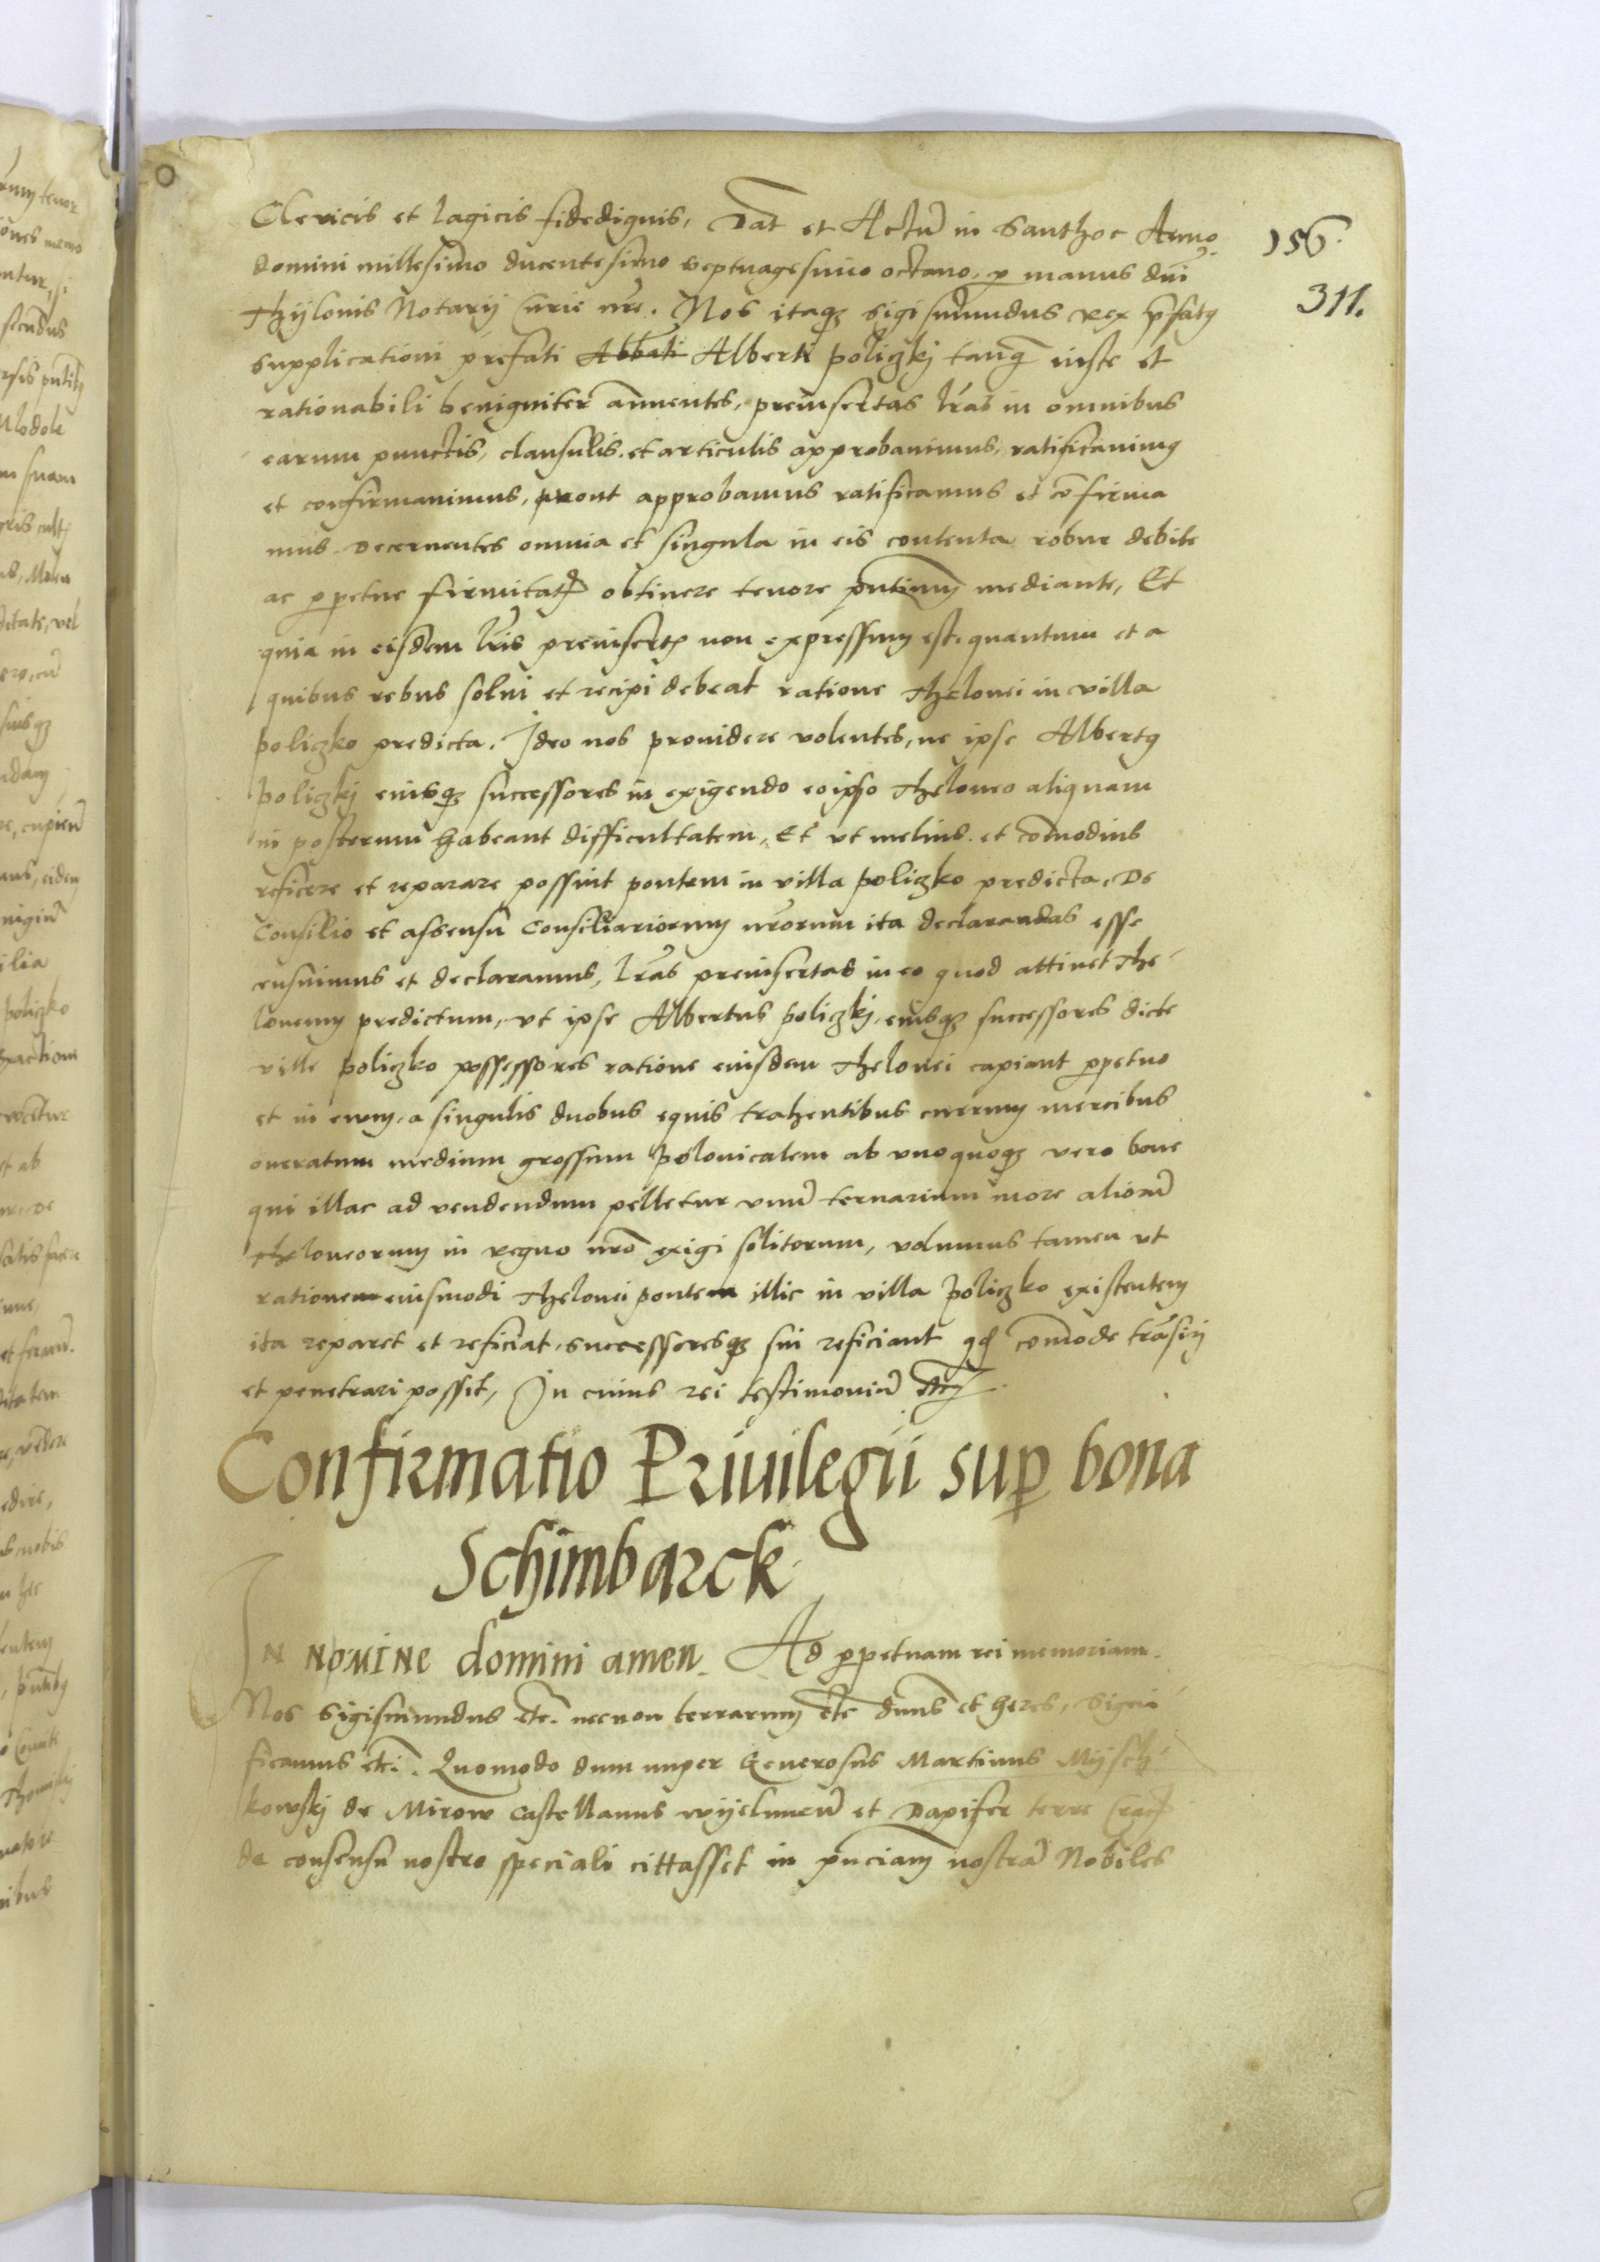 Clericis et lagicis fidedignis, Dat et Actũ in Santhoc Anno
156.
domini millesimo ducentesimo septuagesimo octavo, p manus dni
311.
Thylonis Notarij Curie nre. Nos itaqȝ Sigismundus rex pfatꝰ
supplicationi prefati Abbati Alberti Policzkj tanqȝ iuste et
rationabili benigniter annuentes, preinsertas lras in omnibus
earum punctis, clausulis et articulis approbauimus, ratificauimꝰ
et confirmauimus, prout approbamus ratificamus et cõfirma
mus. Decernentes omnia et singula in eis contenta robur debite
ac ppetue firmitatꝭ obtinere tenore pntium mediante, Et
quia in eisdem lris preinsertꝭ non expressum est quantum et a
quibus rebus solui et recipi debeat ratione thelonei in villa
Policzko predicta. Ideo nos prouidere volentes, ne ipse Albertꝰ
Policzkj eiusqȝ successores in exigendo eo ipso theloneo aliquam
in posterum habeant difficultatem, Et vt melius et cõmodius
reficere et reparare possint pontem in villa Policzko predicta, De
Consilio et assensu Consiliariorum nrorum ita declarandas esse
censuimus et declaramus, lras preinsertas in eo quod attinet The
loneum predictum, vt ipse Albertus Policzkj, eiusqȝ successores dicte
ville Policzko possessores ratione eiusdem thelonei capiant ppetuo
et in euum, a singulis duobus equis trahentibus currum mercibus
oneratum medium grossum Polonicalem ab vnoquoqȝ vero boue
qui illac ad vendendum pelletur vnũ ternarium more aliorũ
theloneorum in regno nro exigi solitorum, volumus tamen vt
rationem eiusmodi thelonei pontem illic in villa Policzko existentem
ita reparet et reficiat, successoresqȝ sui reficiant qd cõmode trãsiri
et penetrari possit, In cuius rei testimoniũ etc
Confirmatio Priuilegii sup bona
Schimbarck
In nomine domini amen. Ad ppetuam rei memoriam.
Nos Sigismundus etc. necnon terrarum etc dnus et heres, Signi
ficamus etc. Quomodo dum nuper Generosus Martinus Mysch
kowskj de Mirow Castellanus wyelunen̄ et Dapifer terre Cracꝭ
de consensu nostro speciali cittasset in pnciam nostrã Nobiles